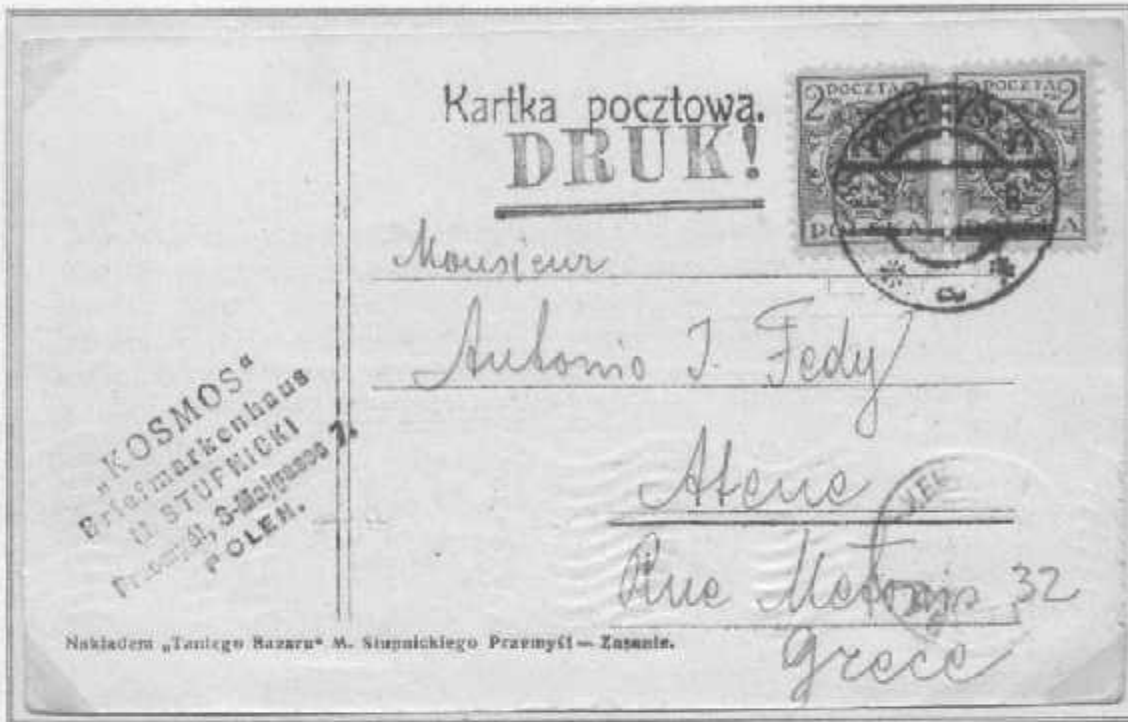 Kartka pocztowa.
DRUK!
2 POCZTA 2
POLSKA
POCZTA 2
PRZEMYŚL
Monsieur
Antonio J. Fedy
Atene
Rue 32
Grece
„KOSMOS“
Briefmarkenhaus
M. STUPNICKI
Przemyśl, 3-Maigasse 7.
POLEN.
Nakładem „Taniego Bazaru“ M. Stupnickiego Przemyśl — Zasanie.